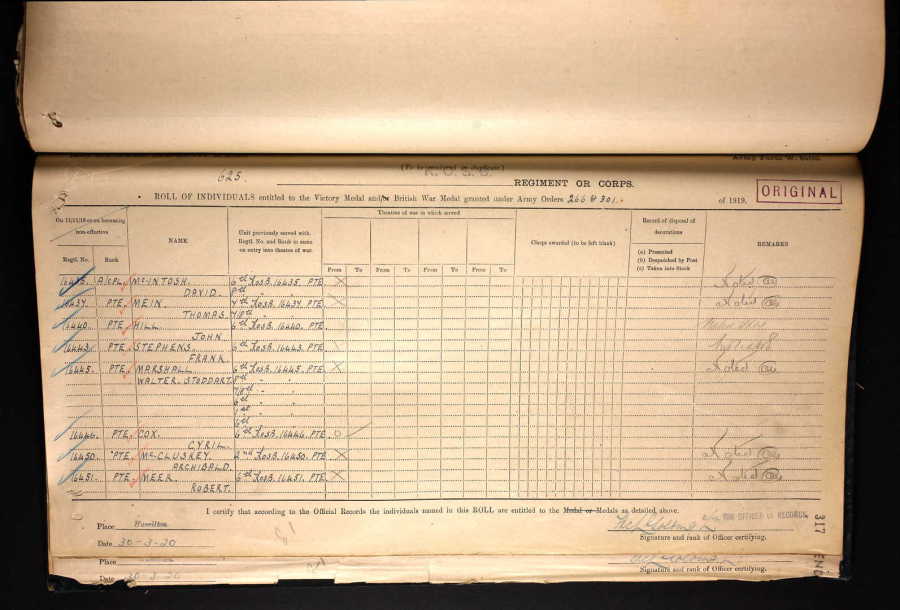 (To be printed in duplicate)
K. O. S. B.
625.
REGIMENT OR CORPS.
ROLL OF INDIVIDUALS entitled to the Victory Medal and/or British War Medal granted under Army Orders 266 & 301.
of 1919.
ORIGINAL
On 11/11/18 or on becoming non-effective
Regtl. No.
Rank
NAME
Unit previously served with. Regtl. No. and Rank in same on entry into theatre of war.
Theatres of war in which served
From To From To From To From To
Clasps awarded (to be left blank)
Record of disposal of decorations
(a) Presented
(b) Despatched by Post
(c) Taken into Stock
REMARKS
16435. A/CPL McINTOSH. 6th KOSB. 16435. PTE. X Noted
DAVID. 8th
16437. PTE. MEIN. 7th KOSB. 16437. PTE. X Noted
THOMAS. 7/8th
16440. PTE HILL 6th KOSB. 16440. PTE.
JOHN
16443. PTE. STEPHENS. 6th KOSB. 16443. PTE.
FRANK.
16445. PTE. MARSHALL 6th KOSB. 16445. PTE X Noted
WALTER. STODDART. 8th " "
7/8th " "
6th " "
1st " "
6th
16446. PTE. COX. 6th KOSB. 16446. PTE. O
CYRIL.
16450. PTE. McCLUSKEY. 2nd KOSB. 16450. PTE. X Noted
ARCHIBALD.
16451. PTE. MEEK. 6th KOSB. 16451. PTE. X Noted
ROBERT.
I certify that according to the Official Records the individuals named in this ROLL are entitled to the Medal or Medals as detailed above.
Place Hamilton
FOR OFFICER i/c RECORDS.
Signature and rank of Officer certifying.
Date 30-3-20
317
Place
Date 30-3-20
Signature and rank of Officer certifying.